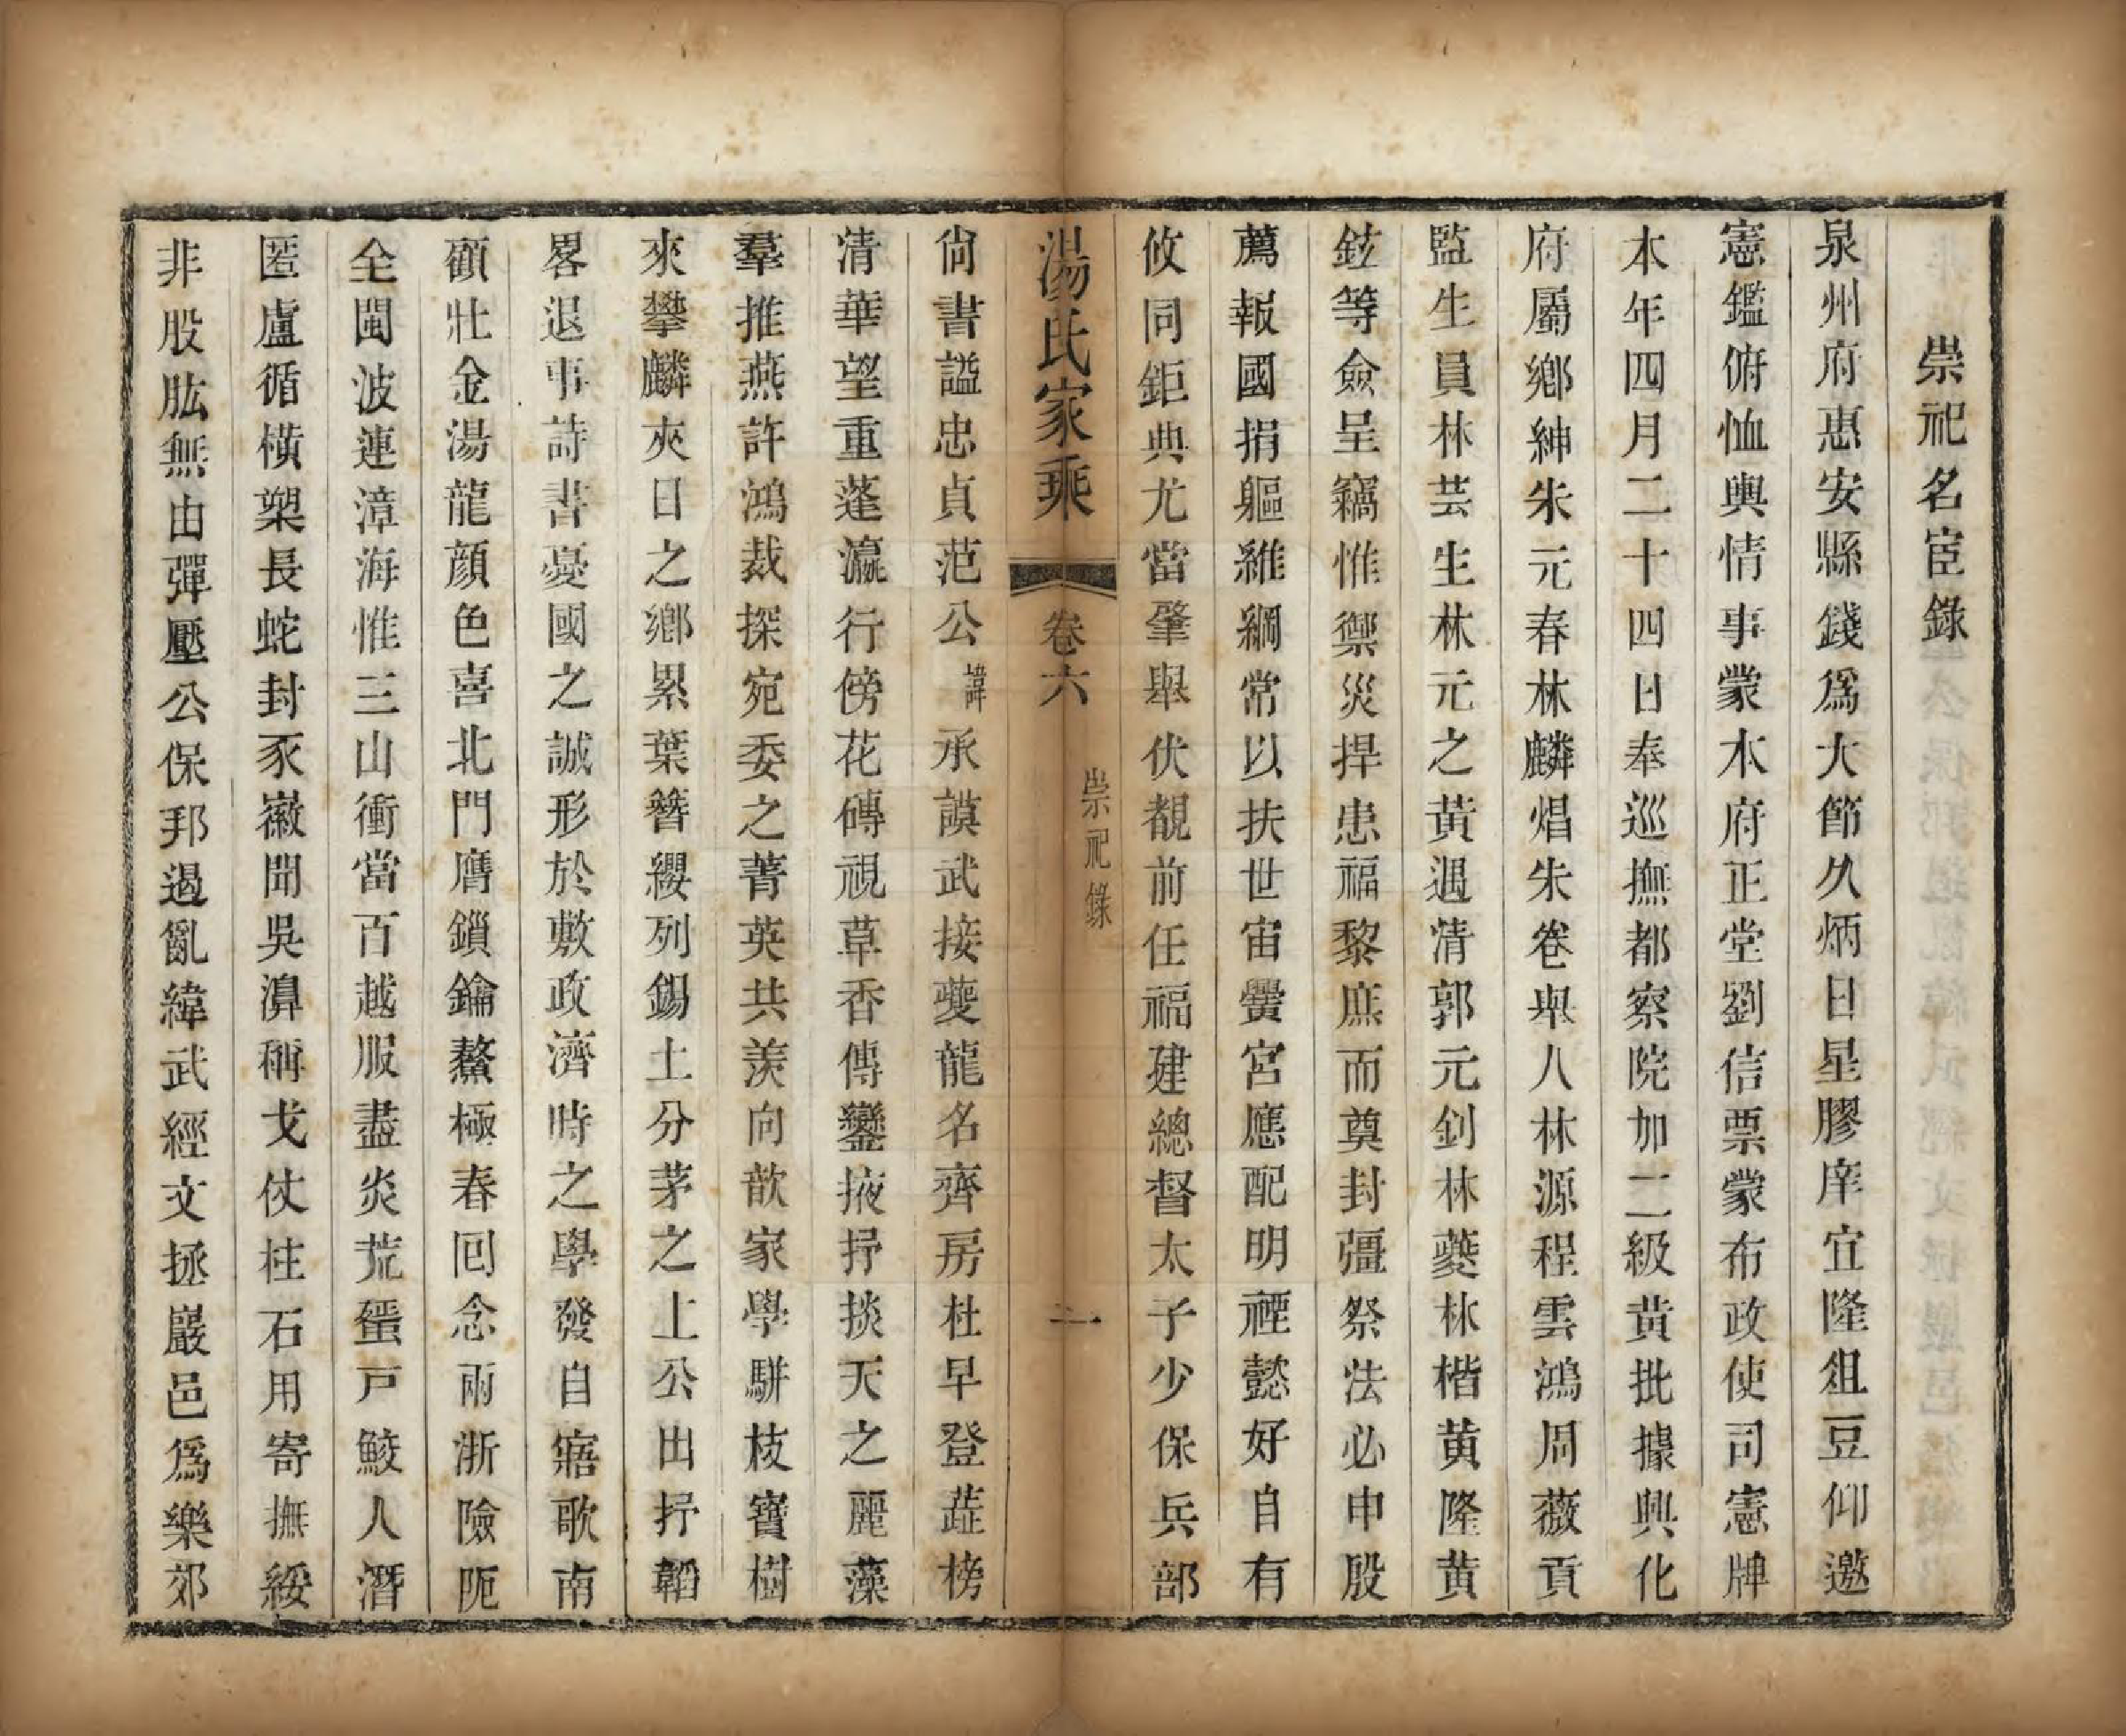 崇祀名宦錄
泉州府惠安縣錢爲大節久炳日星膠庠宜隆俎豆仰邀
憲鑑俯恤輿情事蒙本府正堂劉信票蒙布政使司憲牌
本年四月二十四日奉巡撫都察院加二級黃批據興化
府屬鄉紳朱元春林麟焻朱卷舉人林源程雲鴻周薇貢
監生員林芸生林元之黃遇清郭元釗林蘷林楷黃隆黃
鉉等僉呈竊惟禦災捍患福黎庶而奠封疆祭法必申殷
薦報國捐軀維綱常以扶世宙黌宮應配明禋懿好自有
攸同鉅典尤當肇舉伏覩前任福建總督太子少保兵部
湯氏家乘
卷六
崇祀錄
二
尚書謚忠貞范公諱承謨武接夔龍名齊房杜早登蕋榜
清華望重蓬瀛行傍花磚視草香傳鑾掖抒掞天之麗藻
羣推燕許鴻裁探宛委之菁英共羨向歆家學駢枝寶樹
來攀麟夾日之鄉累葉簪纓列錫土分茅之上公出抒韜
畧退事詩書憂國之誠形於敷政濟時之學發自寤歌南
顧壯金湯龍顔色喜北門膺鎖鑰鰲極春囘念兩浙險阨
全閩波連漳海惟三山衝當百越服盡炎荒蜑戸鮫人潛
匿盧循橫槊長蛇封豕徽聞吳濞稱戈仗柱石用寄撫綏
非股肱無由彈壓公保邦遏亂緯武經文拯巖邑爲樂郊